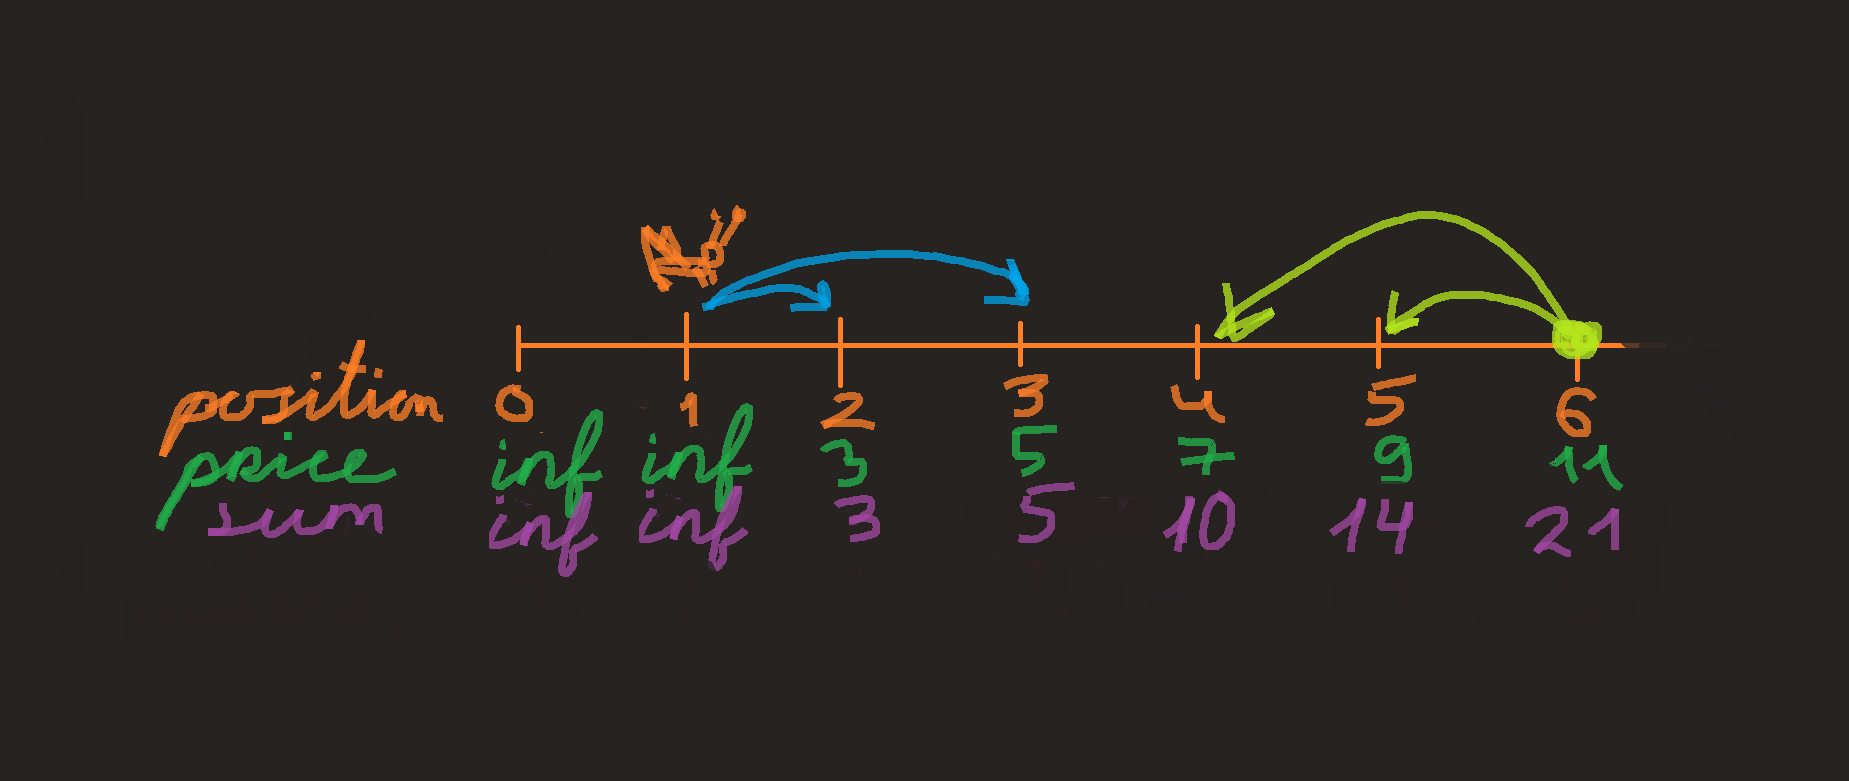 position 0 1 2 3 4 5 6
price inf inf 3 5 7 9 11
sum inf inf 3 5 10 14 21